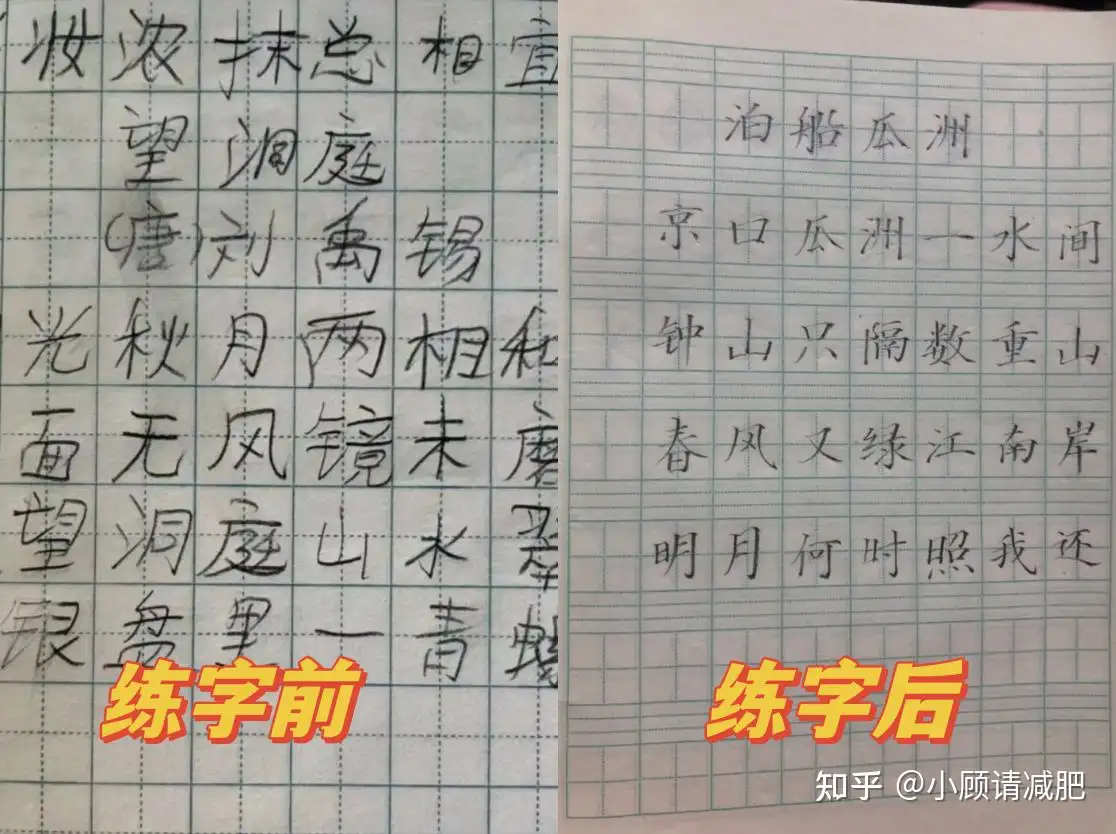 妆浓抹总相宜
望洞庭
(唐)刘禹锡
光秋月两相和
面无风镜未磨
望洞庭山水翠
银盘里一青螺
练字前
泊船瓜洲
京口瓜洲一水间
钟山只隔数重山
春风又绿江南岸
明月何时照我还
练字后
知乎 @小顾请减肥